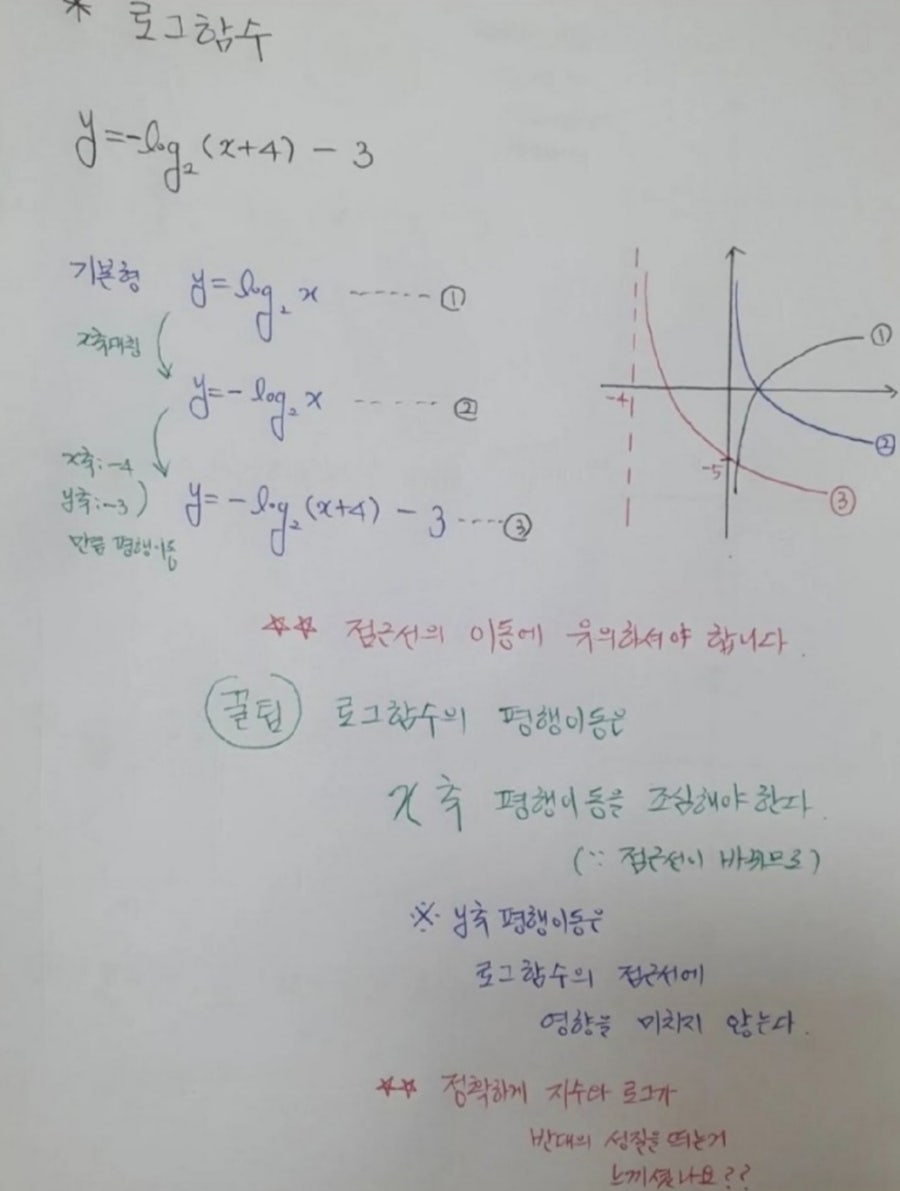 * 로그함수
y=-log₂(x+4) - 3
기본형 y=log₂x ------ ①
x축대칭
y=-log₂x ------ ②
x축:-4
y축:-3)
만큼 평행이동
y=-log₂(x+4) - 3 ---- ③
①
-4
②
-5
③
☆☆ 점근선의 이동에 유의하셔야 합니다.
꿀팁 로그함수의 평행이동은
x축 평행이동을 조심해야 한다.
(∵ 점근선이 바뀌므로)
※ y축 평행이동은
로그함수의 점근선에
영향을 미치지 않는다.
☆☆ 정확하게 지수와 로그가
반대의 성질을 띄는거
느끼셨나요??